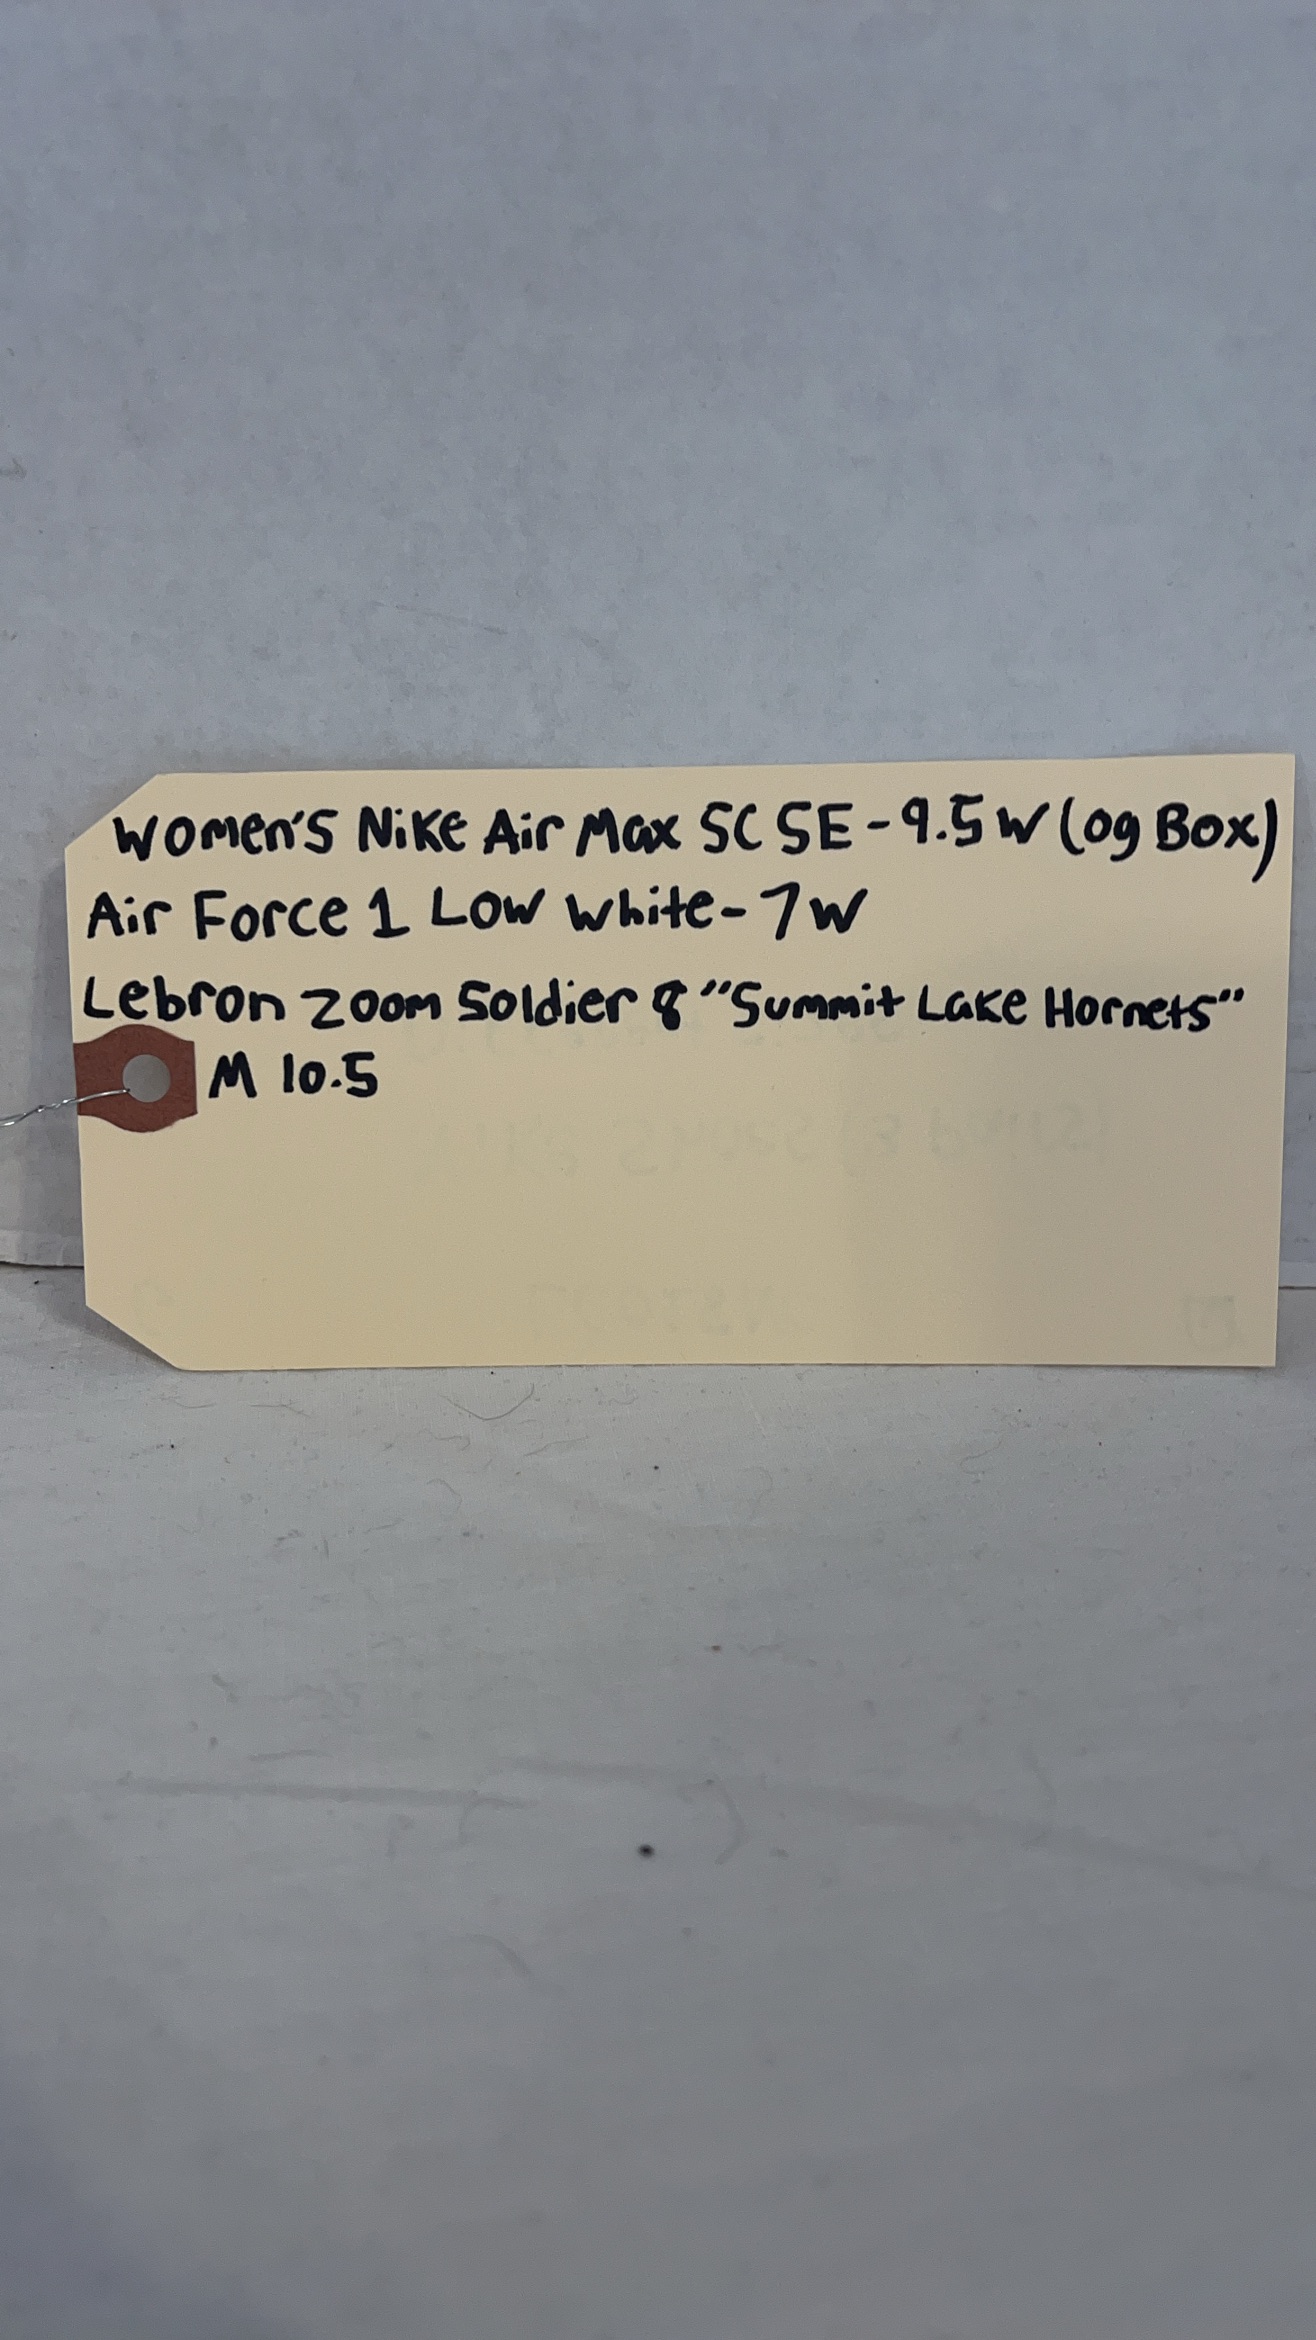 Women's Nike Air Max SC SE - 9.5 W (og Box)
Air Force 1 Low White - 7 W
Lebron Zoom Soldier 8 "Summit Lake Hornets"
M 10.5